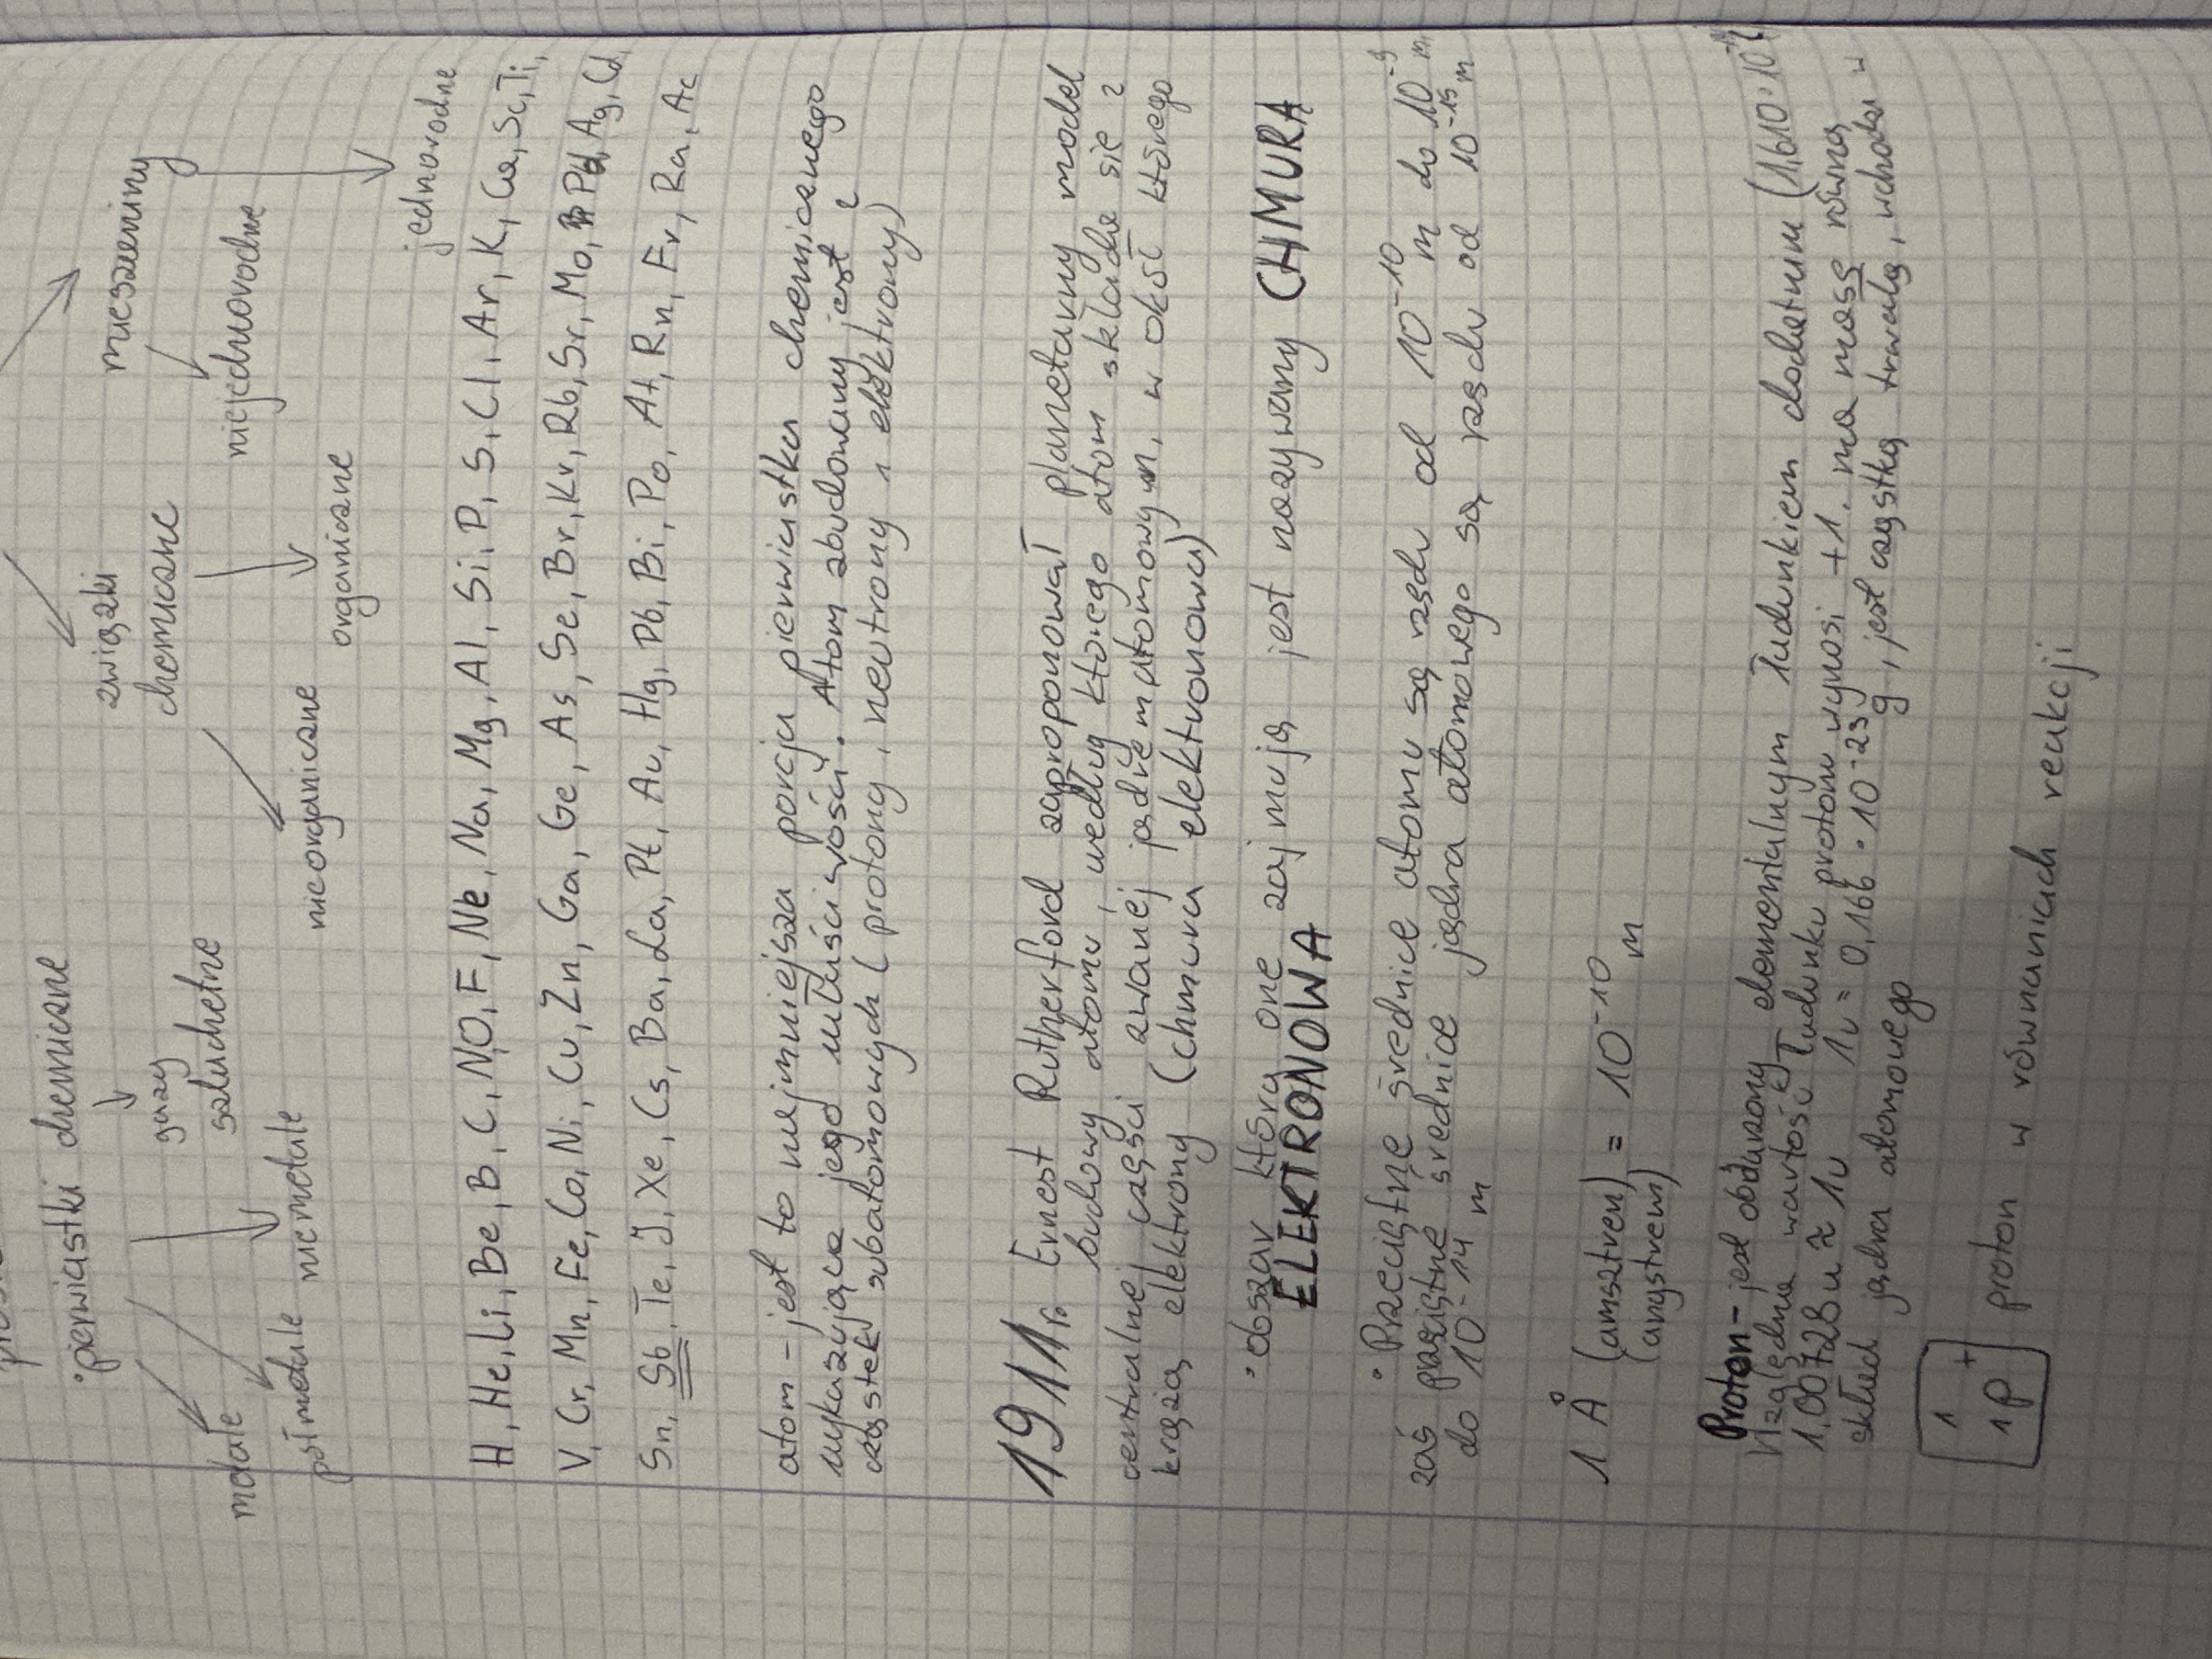 pierwiastki chemiczne
związki
chemiczne
mieszaniny
gazy
szluchetne
niejednorodne
jednorodne
metale
półmetale
niemetale
nieorganiczne
organiczne
H, He, Li, Be, B, C, N, O, F, Ne, Na, Mg, Al, Si, P, S, Cl, Ar, K, Ca, Sc, Ti,
V, Cr, Mn, Fe, Co, Ni, Cu, Zn, Ga, Ge, As, Se, Br, Kr, Rb, Sr, Mo, Pd, Ag, Cd,
Sn, Sb, Te, J, Xe, Cs, Ba, La, Pt, Au, Hg, Pb, Bi, Po, At, Rn, Fr, Ra, Ac
atom - jest to najmniejsza porcja pierwiastka chemicznego
wykazująca jego właściwości. Atom zbudowany jest z
cząstek subatomowych (protony, neutrony i elektrony)
1911r. Ernest Rutherford zaproponował planetarny model
budowy atomu, według którego atom składa się z
centralnej części zwanej jądrem atomowym, w okół którego
krążą elektrony (chmura elektronowa)
• obszar który one zajmują jest nazywany CHMURA
ELEKTRONOWA
• Przeciętne średnice atomu są rzędu od 10⁻¹⁰ m do 10⁻⁹ m,
zaś przeciętne średnice jądra atomowego są rzędu od 10⁻¹⁵ m
do 10⁻¹⁴ m
1 Å (amsztren) = 10⁻¹⁰ m
(angstrem)
Proton - jest obdarzony elementalnym ładunkiem dodatnim (1,610·10
Względna wartość ładunku protonu wynosi +1. ma masę równą
1,00728u ≈ 1u 1u = 0,166 · 10⁻²³ g, jest cząstką trwałą, wchodzi w
skład jądra atomowego
¹₁p⁺ proton w równaniach reakcji